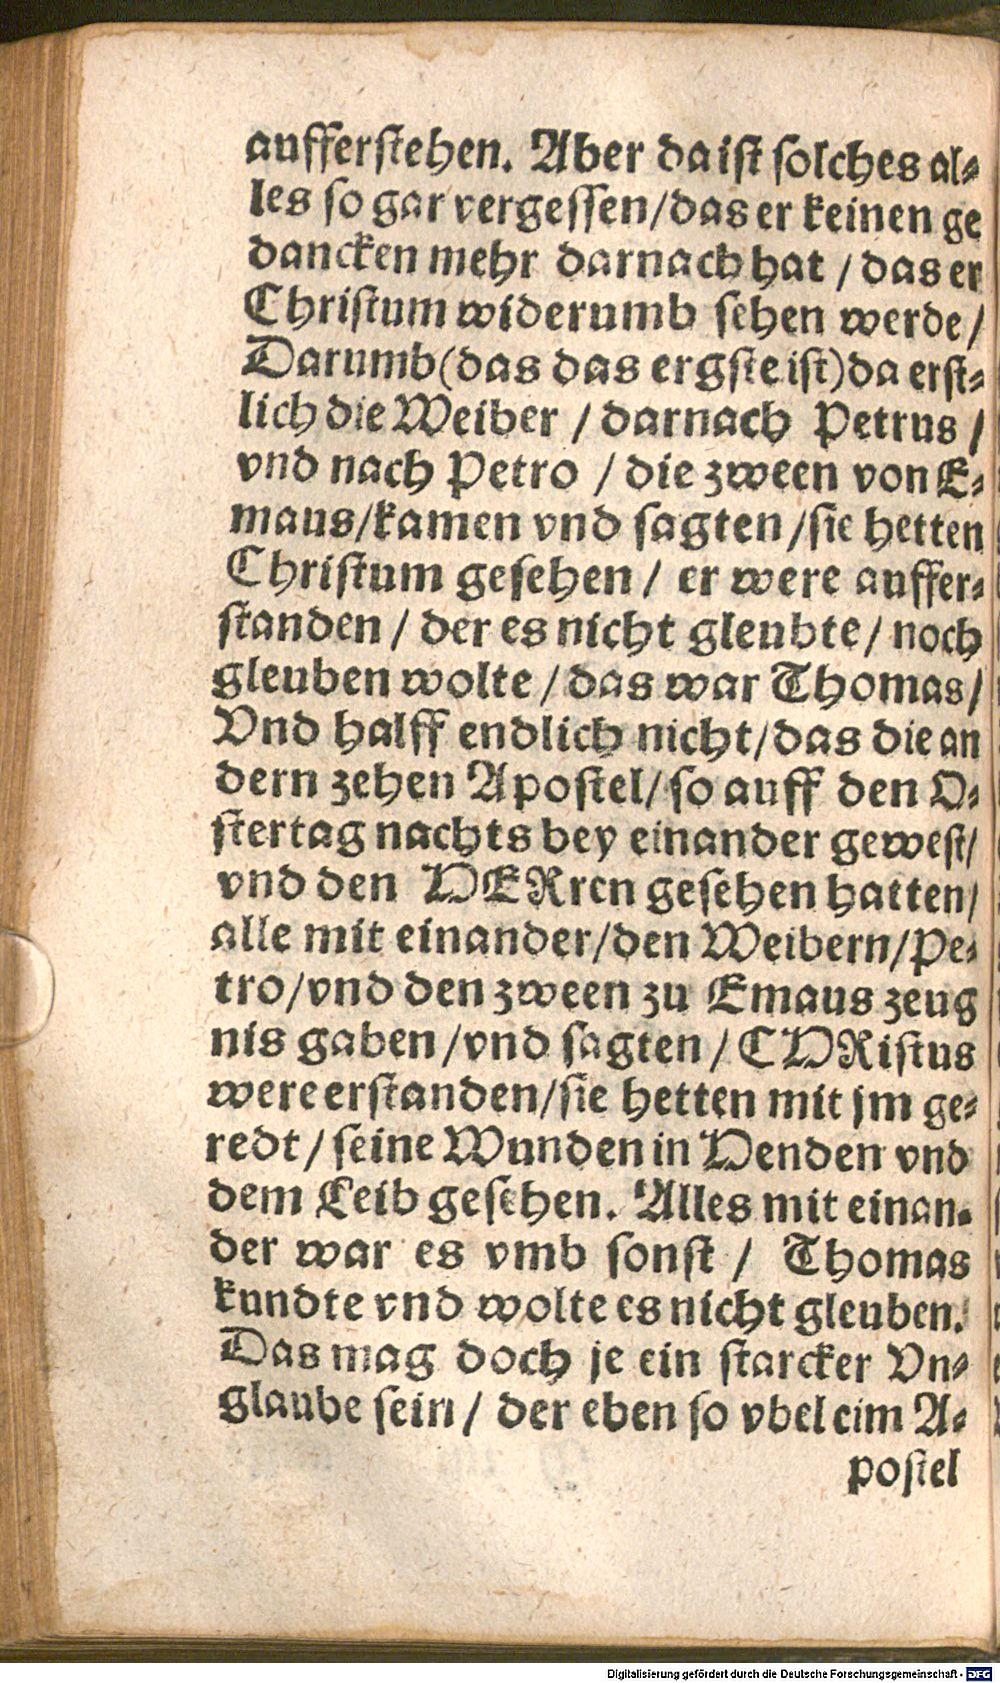 aufferſtehen. Aber da iſt ſolches al⸗
les ſo gar vergeſſen/das er keinen ge
dancken mehr darnach hat / das er
Chriſtum widerumb ſehen werde/
Darumb(das das ergſte iſt)da erſt⸗
lich die Weiber / darnach Petrus /
vnd nach Petro / die zween von E⸗
maus/kamen vnd ſagten /ſie hetten
Chriſtum geſehen/ er were auffer⸗
ſtanden / der es nicht gleubte/ noch
gleuben wolte /das war Thomas/
Vnd halff endlich nicht/das die an
dern zehen Apoſtel/ſo auff den O⸗
ſtertag nachts bey einander geweſt/
vnd den HERren geſehen hatten/
alle mit einander/den Weibern/Pe⸗
tro/vnd den zween zu Emaus zeug
nis gaben /vnd ſagten / CHRiſtus
were erſtanden/ſie hetten mit jm ge⸗
redt / ſeine Wunden in Henden vnd
dem Leib geſehen. Alles mit einan⸗
der war es vmb ſonſt / Thomas
kundte vnd wolte es nicht gleuben.
Das mag doch je ein ſtarcker Vn⸗
glaube ſein / der eben ſo vbel eim A⸗
poſtel
Digitalisierung gefördert durch die Deutsche Forschungsgemeinschaft - DFG